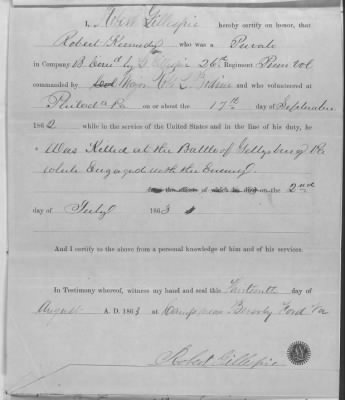 I, Robert Gillespie hereby certify on honor, that
Robert Kennedy who was a Private
in Company B Com'd by R Gillespie 26th Regiment Penn Vol
commanded by Major R. L. Bodine and who volunteered at
Philad'a Pa on or about the 17th day of September
1862 while in the service of the United States and in the line of his duty, he
Was Killed at the Battle of Gettysburg Pa
while Engaged with the Enemy.
from the effects of which he died on the 2nd
day of July 1863
And I certify to the above from a personal knowledge of him and of his services.
In Testimony whereof, witness my hand and seal this day of
August A. D. 1863 at Camp near Beverly Ford Va
Robert Gillespie